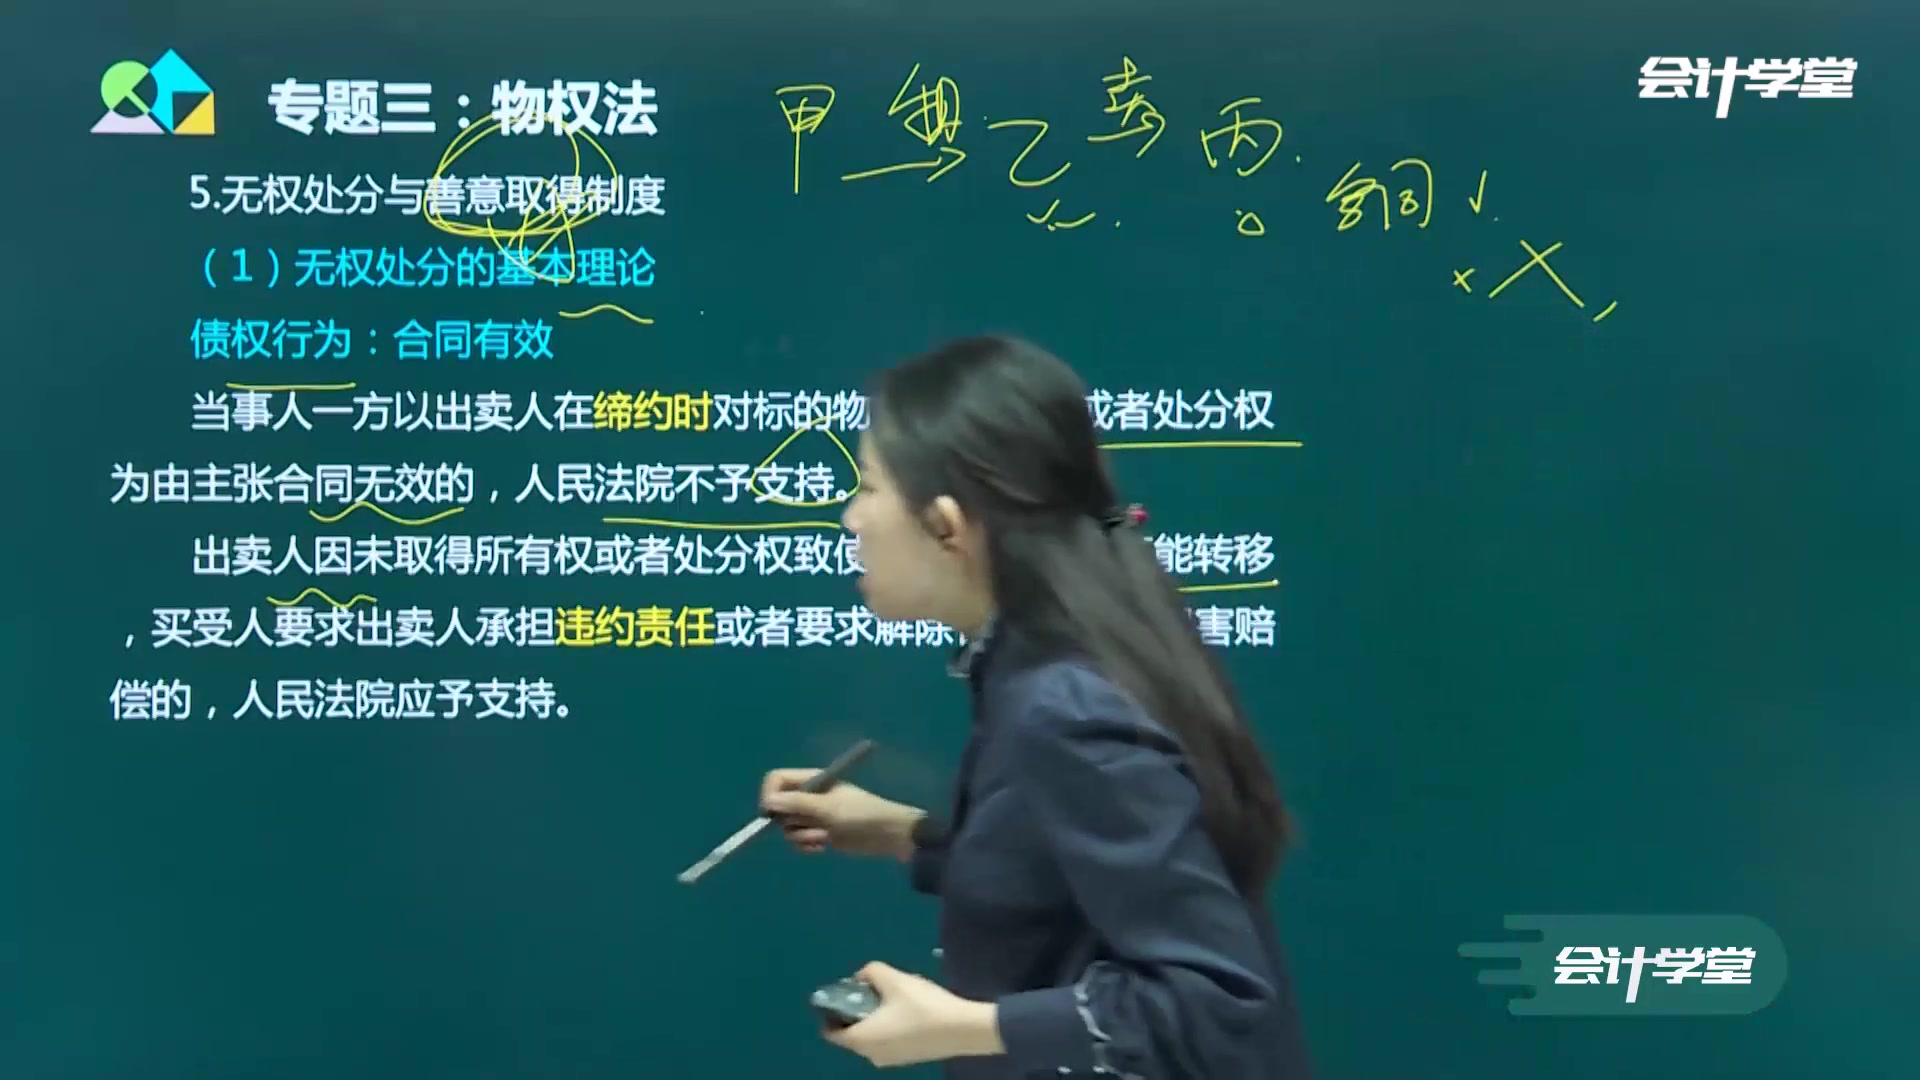 专题三：物权法
会计学堂
甲 乙 卖 丙
合同
5.无权处分与善意取得制度
（1）无权处分的基本理论
债权行为：合同有效
当事人一方以出卖人在缔约时对标的物 或者处分权
为由主张合同无效的，人民法院不予支持。
出卖人因未取得所有权或者处分权致使 能转移
，买受人要求出卖人承担违约责任或者要求解除 害赔
偿的，人民法院应予支持。
会计学堂